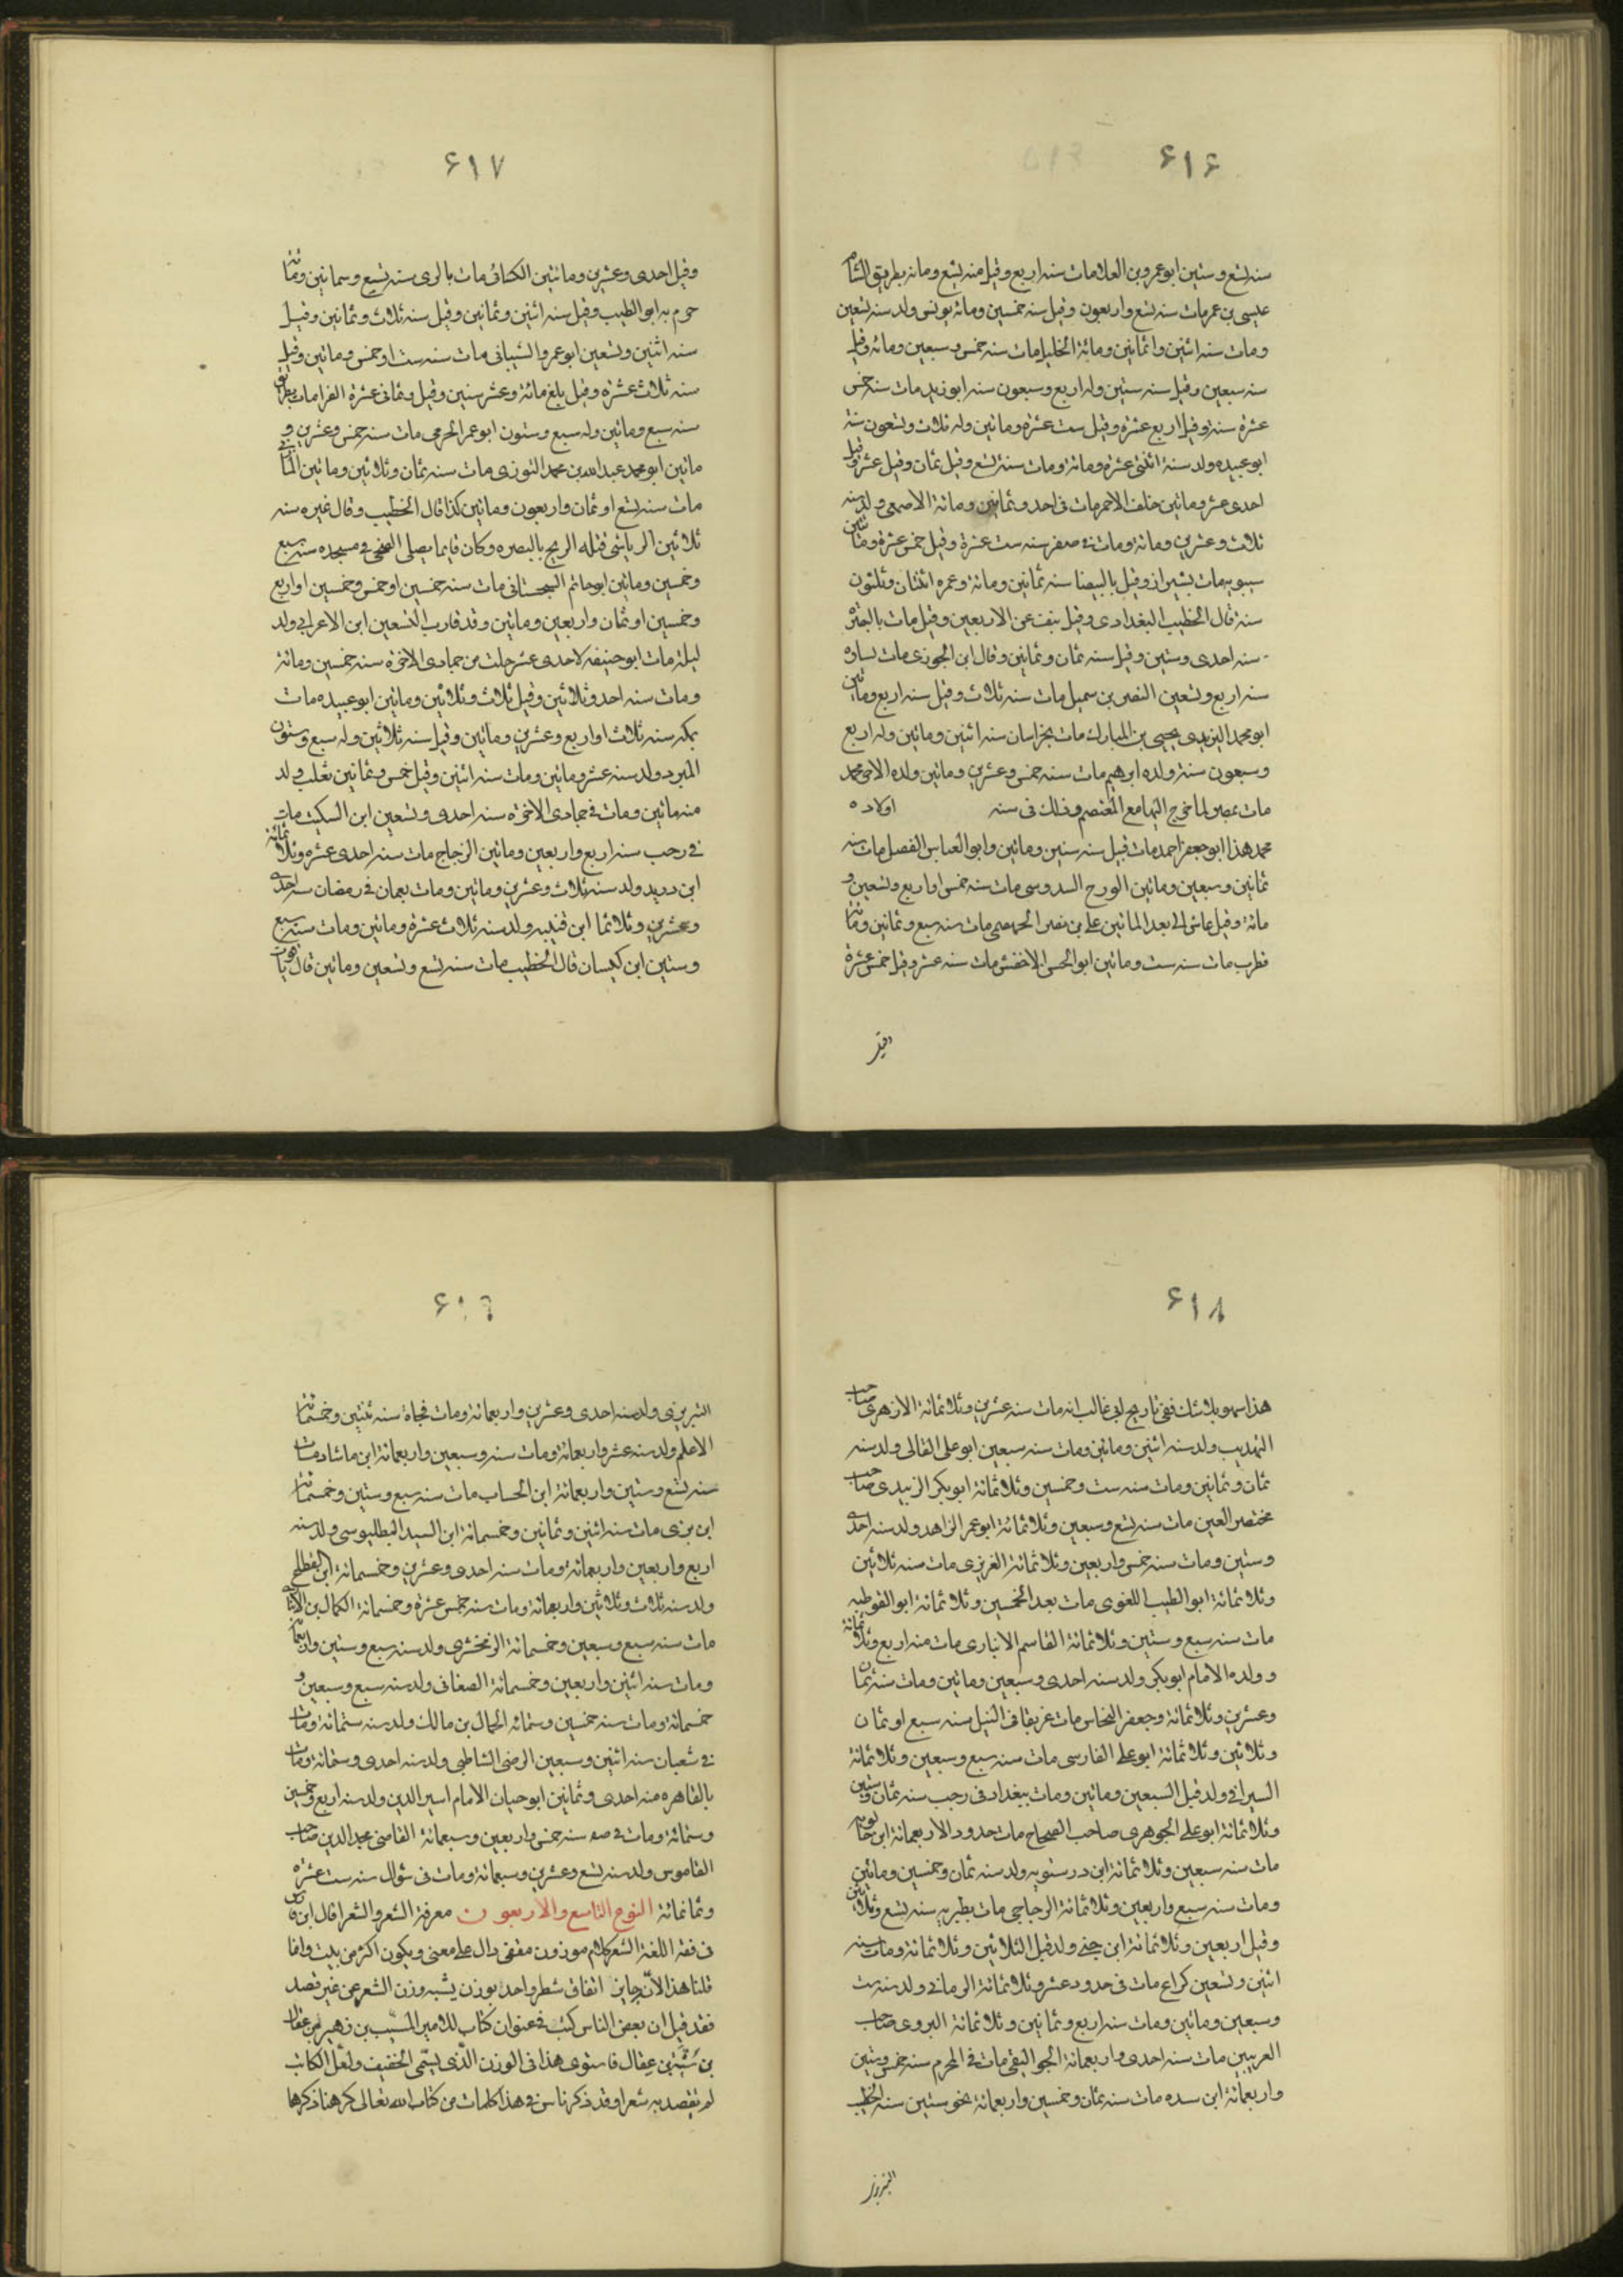 ۶۱۶
سنه تسع وستين ابو عمرو بن العلا مات سنه اربع وقيل سنه تسع ومائه بطريق الشام
عيسى بن عمر مات سنه تسع واربعون وقيل سنه خمسين ومائة يونس ولد سنه تسعين
ومات سنه اثنين واثمانين ومائة الخليل مات سنه خمس وسبعين ومائه وقيل
سنه سبعين وقيل سنه ستين وله اربع وسبعون سنه ابو زيد مات سنه خمس
عشرة سنة وقيل اربع عشرة وقيل ست عشرة ومائتين وله ثلاث وتسعون سنة
ابو عبيده ولد سنة اثنتى عشرة ومائة ومات سنة تسع وقيل ثمان وقيل عشر وقيل
احدى عشر ومائتين خلف الاحمر مات فى احد وثمانين ومائة الاصمعى ولد سنه
ثلاث وعشرين ومائة ومات فى صفر سنه ست عشرة وقيل خمس عشرة ومائتين
سيبويه مات بشيراز وقيل بالبيضا سنه ثمانين ومائة وعمره اثنتان وثلثون
سنة قال الخطيب البغدادى وقيل نيف عن الاربعين وقيل مات بالبصره
سنه احدى وستين وقيل سنه ثمان وثمانين وقال ابن الجوزى مات بساوه
سنه اربع وتسعين النضر بن سميل مات سنه ثلاث وقيل سنه اربع ومائتين
ابو محمد اليزيدى يحيى بن المبارك مات بخراسان سنه اثنين ومائتين وله اربع
وسبعون سنة ولده ابرهيم مات سنه خمس وعشرين ومائتين ولده الاخى محمد
مات بمصر لما خرج اليها مع المعتصم وذلك فى سنه اولاده
محمد هذا ابو جعفر احمد مات قبيل سنه ستين ومائتين وابو العباس الفضل مات سنه
ثمانين وسبعين ومائتين المورج السدوسى مات سنه خمس او اربع وتسعين و
مائة وقيل عاش الى بعد المائتين على بن نصر الجهضمى مات سنه سبع وثمانين ومائة
قطرب مات سنه ست ومائتين ابو الحسن الاخفش مات سنه عشر وقيل خمس عشرة
وقيل
۶۱۷
وقيل احدى وعشرين ومائتين الكسائى مات بالرى سنه تسيع وسمانين ومائة
جزم به ابو الطيب وقيل سنه اثنين وثمانين وقيل سنه ثلاث وثمانين وقيل
سنه اثنين وتسعين ابو عمرو الشيبانى مات سنه ست او خمس ومائتين وقيل
سنه ثلاث عشرة وقيل بلغ مائة وعشر سنين وقيل وثمانى عشرة الفرا مات بطريق
سنه سبع ومائتين وله سبع وستون ابو عمر الجرمى مات سنه خمس وعشرين و
مائتين ابو محمد عبد الله بن محمد التوزى مات سنه ثمان وثلاثين ومائتين المازنى
مات سنه تسع او ثمان واربعون ومائتين كذا قال الخطيب وقال غيره سنه
ثلاثين الرياشى قتله الريج بالبصره وكان قايما يصلى الضحى فى مسجده سنه سبع
وخمسين ومائتين ابو حاتم السجستانى مات سنه خمسين او خمس وخمسين او اربع
وخمسين او ثمان واربعين ومائتين وقد قارب التسعين ابن الاعرابى ولد
ليلة مات ابو حنيفه لاحدى عشر خلت من جمادى الاخرة سنه خمسين ومائة
ومات سنه احد وثلاثين وقيل ثلاث وثلاثين ومائتين ابو عبيده مات
بمكه سنه ثلاث او اربع وعشرين ومائتين وقيل سنه ثلاثين وله سبع وستون
المبرد ولد سنه عشر ومائتين ومات سنه اثنين وقيل خمس وثمانين ثعلب ولد
سنه مائتين ومات فى جمادى الاخرة سنه احدى وتسعين ابن السكيت مات
فى رجب سنه اربع واربعين ومائتين الزجاج مات سنه احدى عشره وثلاثمائة
ابن دريد ولد سنه ثلاث وعشرين ومائتين ومات بعمان فى رمضان سنه احدى
وعشرين وثلاثما ابن قتيبه ولد سنه ثلاث عشرة ومائتين ومات سنة سبع
وستين ابن كيسان قال الخطيب مات سنه تسع وتسعين ومائتين قال ياقوت
۶۱۸
هذا سهو بلا شك ففى تاريخ ابى غالب انه مات سنه عشرين وثلاثمائة الازهرى صاحب
التهذيب ولد سنه اثنين ومائتين ومات سنه سبعين ابو على القالى ولد سنه
ثمان وثمانين ومات سنه ست وخمسين وثلاثمائة ابو بكر الزبيدى صاحب
مختصر العين مات سنه تسع وسبعين وثلاثمائة ابو عمر الزاهد ولد سنه احدى
وستين ومات سنه خمس واربعين وثلاثمائة العزيزى مات سنه ثلاثين
وثلاثمائة ابو الطيب اللغوى مات بعد الخمسين وثلاثمائة ابو القوطيه
مات سنه سبع وستين وثلاثمائة القاسم الانبارى مات سنه اربع وثلاثمائة
وولده الامام ابو بكر ولد سنه احدى وسبعين ومائتين ومات سنه ثمان
وعشرين وثلاثمائة وجعفر النحاس مات غريقا فى النيل سنه سبع او ثمان
وثلاثين وثلاثمائة ابو على الفارسى مات سنه سبع وسبعين وثلاثمائة
السيرافى ولد قبل السبعين ومائتين ومات ببغداد فى رجب سنه ثمان وستين
وثلاثمائة ابو على الجوهرى صاحب الصحاح مات حدود الاربعمائة ابن خالويه
مات سنه سبعين وثلاثمائة ابن درستويه ولد سنه ثمان وخمسين ومائتين
ومات سنه سبع واربعين وثلاثمائة الزجاجى مات بطبريه سنه تسع وثلاثين
وقيل اربعين وثلاثمائة ابن جنى ولد قبل الثلاثين وثلاثمائة ومات سنه
اثنين وتسعين كراع مات فى حدود عشر وثلاثمائة الرمانى ولد سنه ست
وسبعين ومائتين ومات سنه اربع وثمانين وثلاثمائة الهروى صاحب
الغريبين مات سنه احدى واربعمائة الجواليقى مات فى المحرم سنه خمس وستين
واربعمائة ابن سده مات سنه ثمان وخمسين واربعمائة نحو ستين سنه الخطيب
التبريزى
۶۱۹
التبريزى ولد سنه احدى وعشرين واربعمائة ومات فجاة سنه ثنتين وخمسمائة
الاعلم ولد سنه عشر واربعمائة ومات سنه وسبعين واربعمائة ابن ماشاد مات
سنه تسع وستين واربعمائة ابن الخساب مات سنه سبع وستين وخمسمائة
ابن برى مات سنه اثنين وثمانين وخمسمائة ابن السيد البطليوسى ولد سنه
اربع واربعين واربعمائة ومات سنه احدى وعشرين وخمسمائة ابن القطاع
ولد سنه ثلاث وثلاثين واربعمائة ومات سنه خمس عشرة وخمسمائة الكمال بن الانبارى
مات سنه سبع وسبعين وخمسمائة الزمخشرى ولد سنه سبع وستين واربعمائة
ومات سنه اثنين واربعين وخمسمائة الصغانى ولد سنه سبع وسبعين و
خمسمائة ومات سنه خمسين وستمائه الجمال بن مالك ولد سنه ستمائة ومات
فى شعبان سنه اثنين وسبعين الرضى الشاطبى ولد سنه احدى وستمائة ومات
بالقاهره سنه احدى وثمانين ابو حيان الامام اسير الدين ولد سنه اربع وخمسين
وستمائة ومات فى صفر سنه خمس واربعين وسبعمائة القاضى مجد الدين صاحب
القاموس ولد سنه تسع وعشرين وسبعمائة ومات فى شوال سنه ست عشرة
وثمانمائة النوع التاسع والاربعون معرفة الشعر والشعرا قال ابن فارس
فى فقه اللغة الشعر كلام موزون مقفى دال على معنى ويكون اكثر من بيت وانما
قلنا هذا لان جايز اتفاق شطر واحد بوزن يشبه وزن الشعر عن غير قصد
فقد قيل ان بعض الناس كتب فى عنوان كتاب للامير المسيب بن زهير من عقال
بن شبة بن عقال فاستوى هذا فى الوزن الذى يسمى الخفيف ولعل الكاتب
لم يقصد به شعرا وقد ذكر ناس فى هذا كلمات من كتاب الله تعالى كرهنا ذكرها